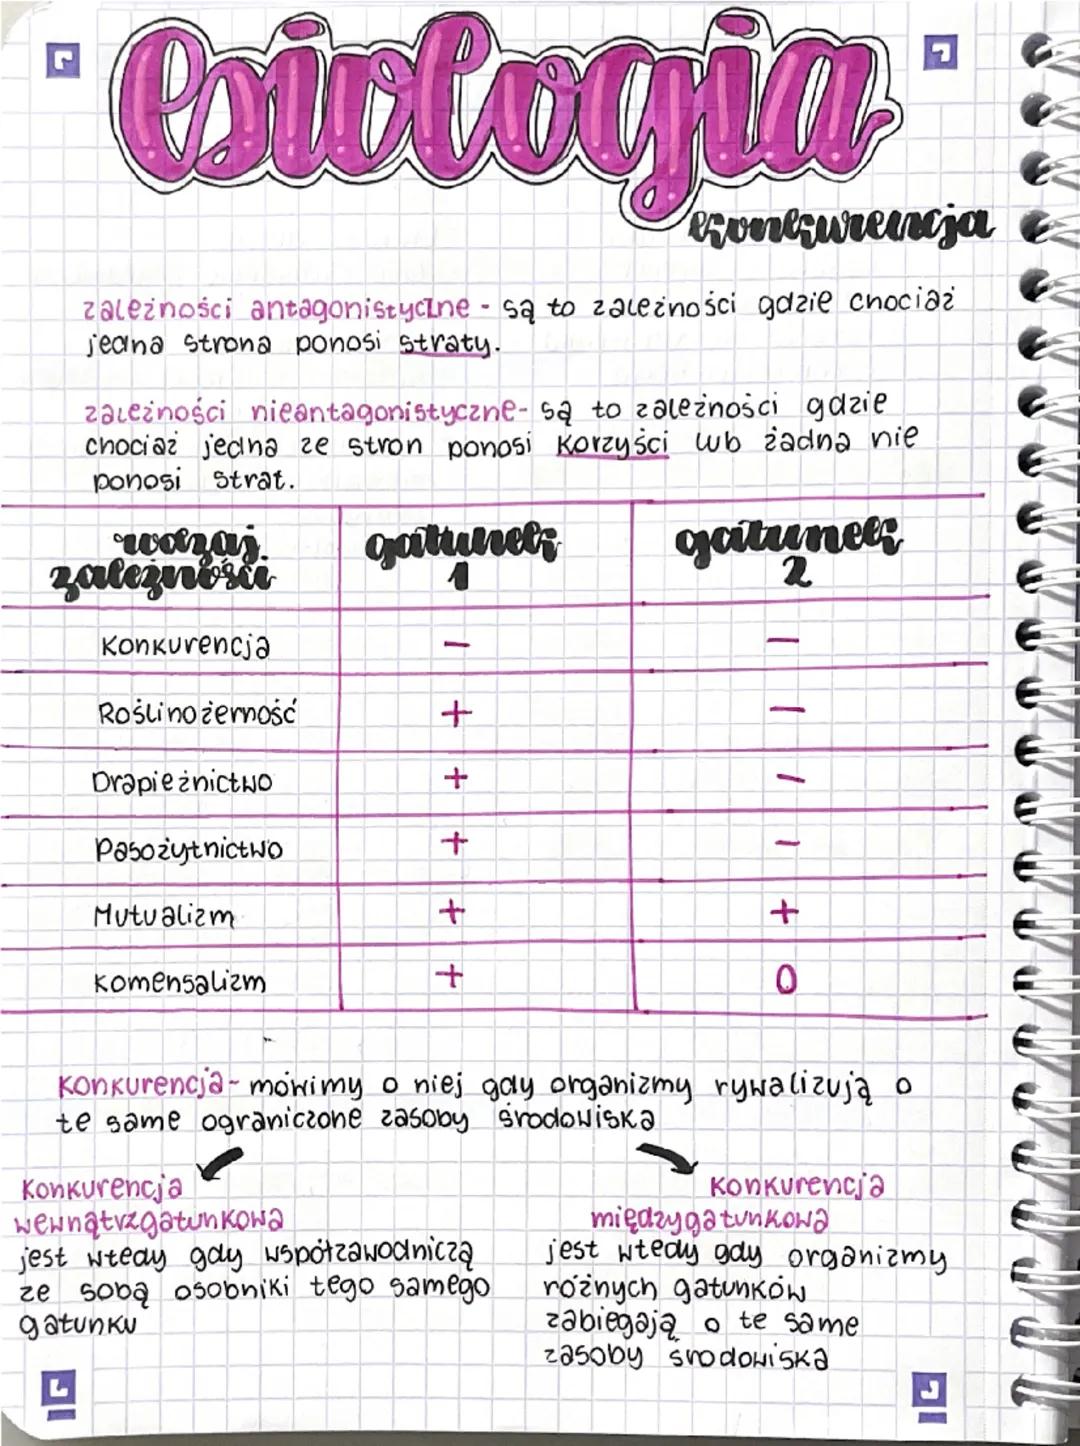 esiologia
konkurencja
zależności antagonistyczne - są to zależności gdzie chociaż
jedna strona ponosi straty.
zależności nieantagonistyczne - są to zależności gdzie
chociaż jedna ze stron ponosi korzyści lub żadna nie
ponosi strat.
rodzaj zależności gatunek 1 gatunek 2
Konkurencja − −
Roślinożerność + −
Drapieżnictwo + −
Pasożytnictwo + −
Mutualizm + +
Komensalizm + 0
Konkurencja - mówimy o niej gdy organizmy rywalizują o
te same ograniczone zasoby środowiska
Konkurencja
wewnątrzgatunkowa
jest wtedy gdy współzawodniczą
ze sobą osobniki tego samego
gatunku
Konkurencja
międzygatunkowa
jest wtedy gdy organizmy
różnych gatunków
zabiegają o te same
zasoby środowiska